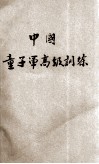 中國
童子軍高級訓練